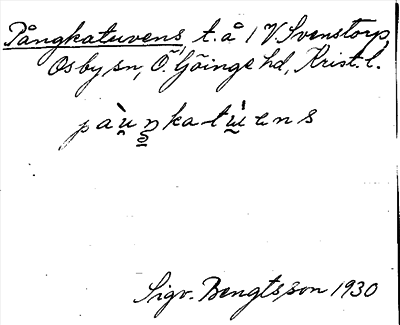 Pångkatuvens, t. å / V. Svenstorp,
Osby sn, Ö. Göinge hd, Krist. l.
pàu̯ŋkatùu̯ens
Sigv. Bengtsson 1930